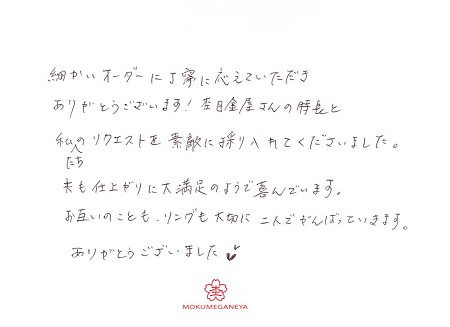 細かいオーダーに丁寧に応えていただき
ありがとうございます！杢目金屋さんの特長と
私たちのリクエストを素敵に採り入れてくださいました。
夫も仕上がりに大満足のようで喜んでいます。
お互いのことも、リングも大切に二人でがんばっていきます。
ありがとうございました
MOKUMEGANEYA